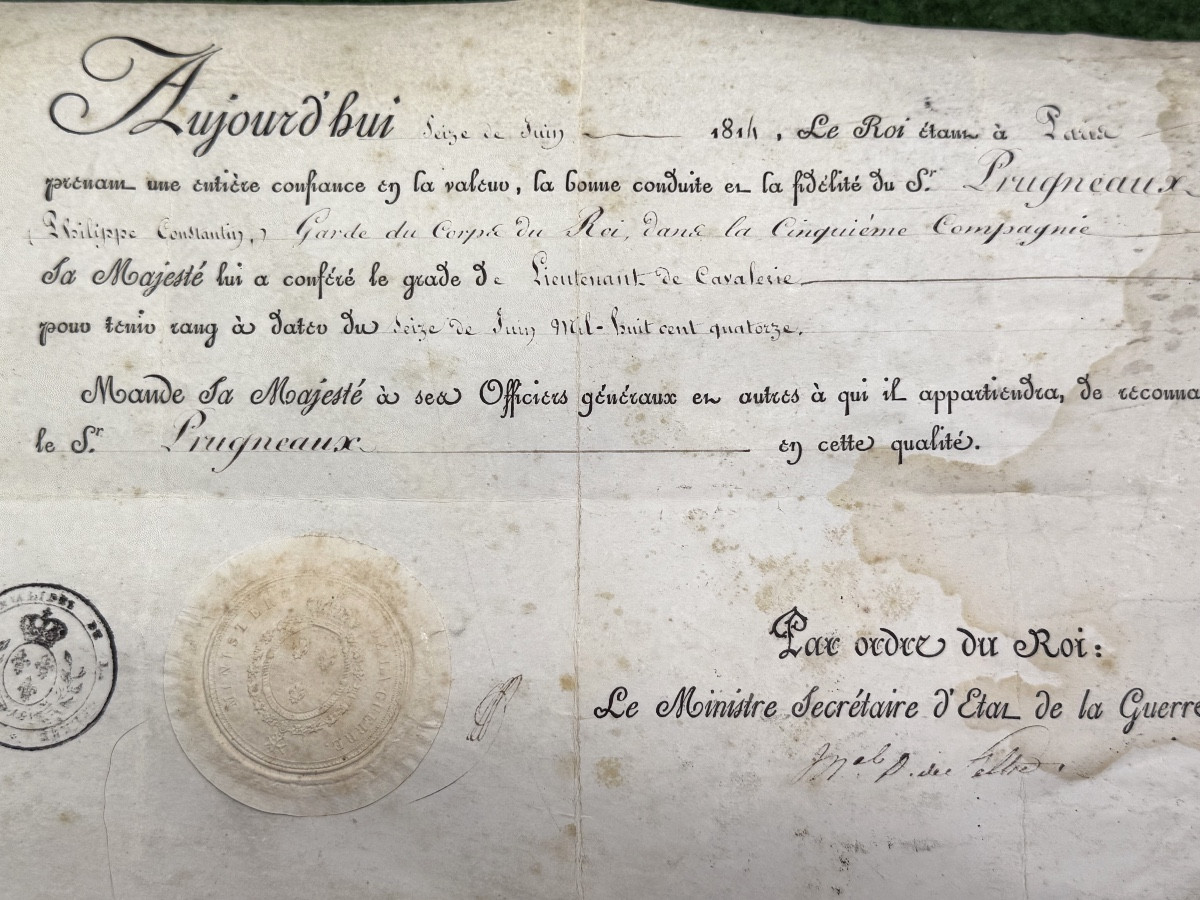 Aujourd'hui Seize de Juin 1814, Le Roi étant à Paris
prenant une entière confiance en la valeur, la bonne conduite et la fidélité du Sr. Prugneaux
(Philippe Constantin,) Garde du Corps du Roi, dans la Cinquième Compagnie
Sa Majesté lui a conféré le grade de Lieutenant de Cavalerie
pour tenir rang à dater du Seize de Juin Mil-huit cent quatorze.
Mande Sa Majesté à ses Officiers généraux et autres à qui il appartiendra, de reconna
le Sr. Prugneaux en cette qualité.
MINISTÈRE GUERRE
Par ordre du Roi:
Le Ministre Secrétaire d'Etat de la Guerre
Mal D. de Feltre